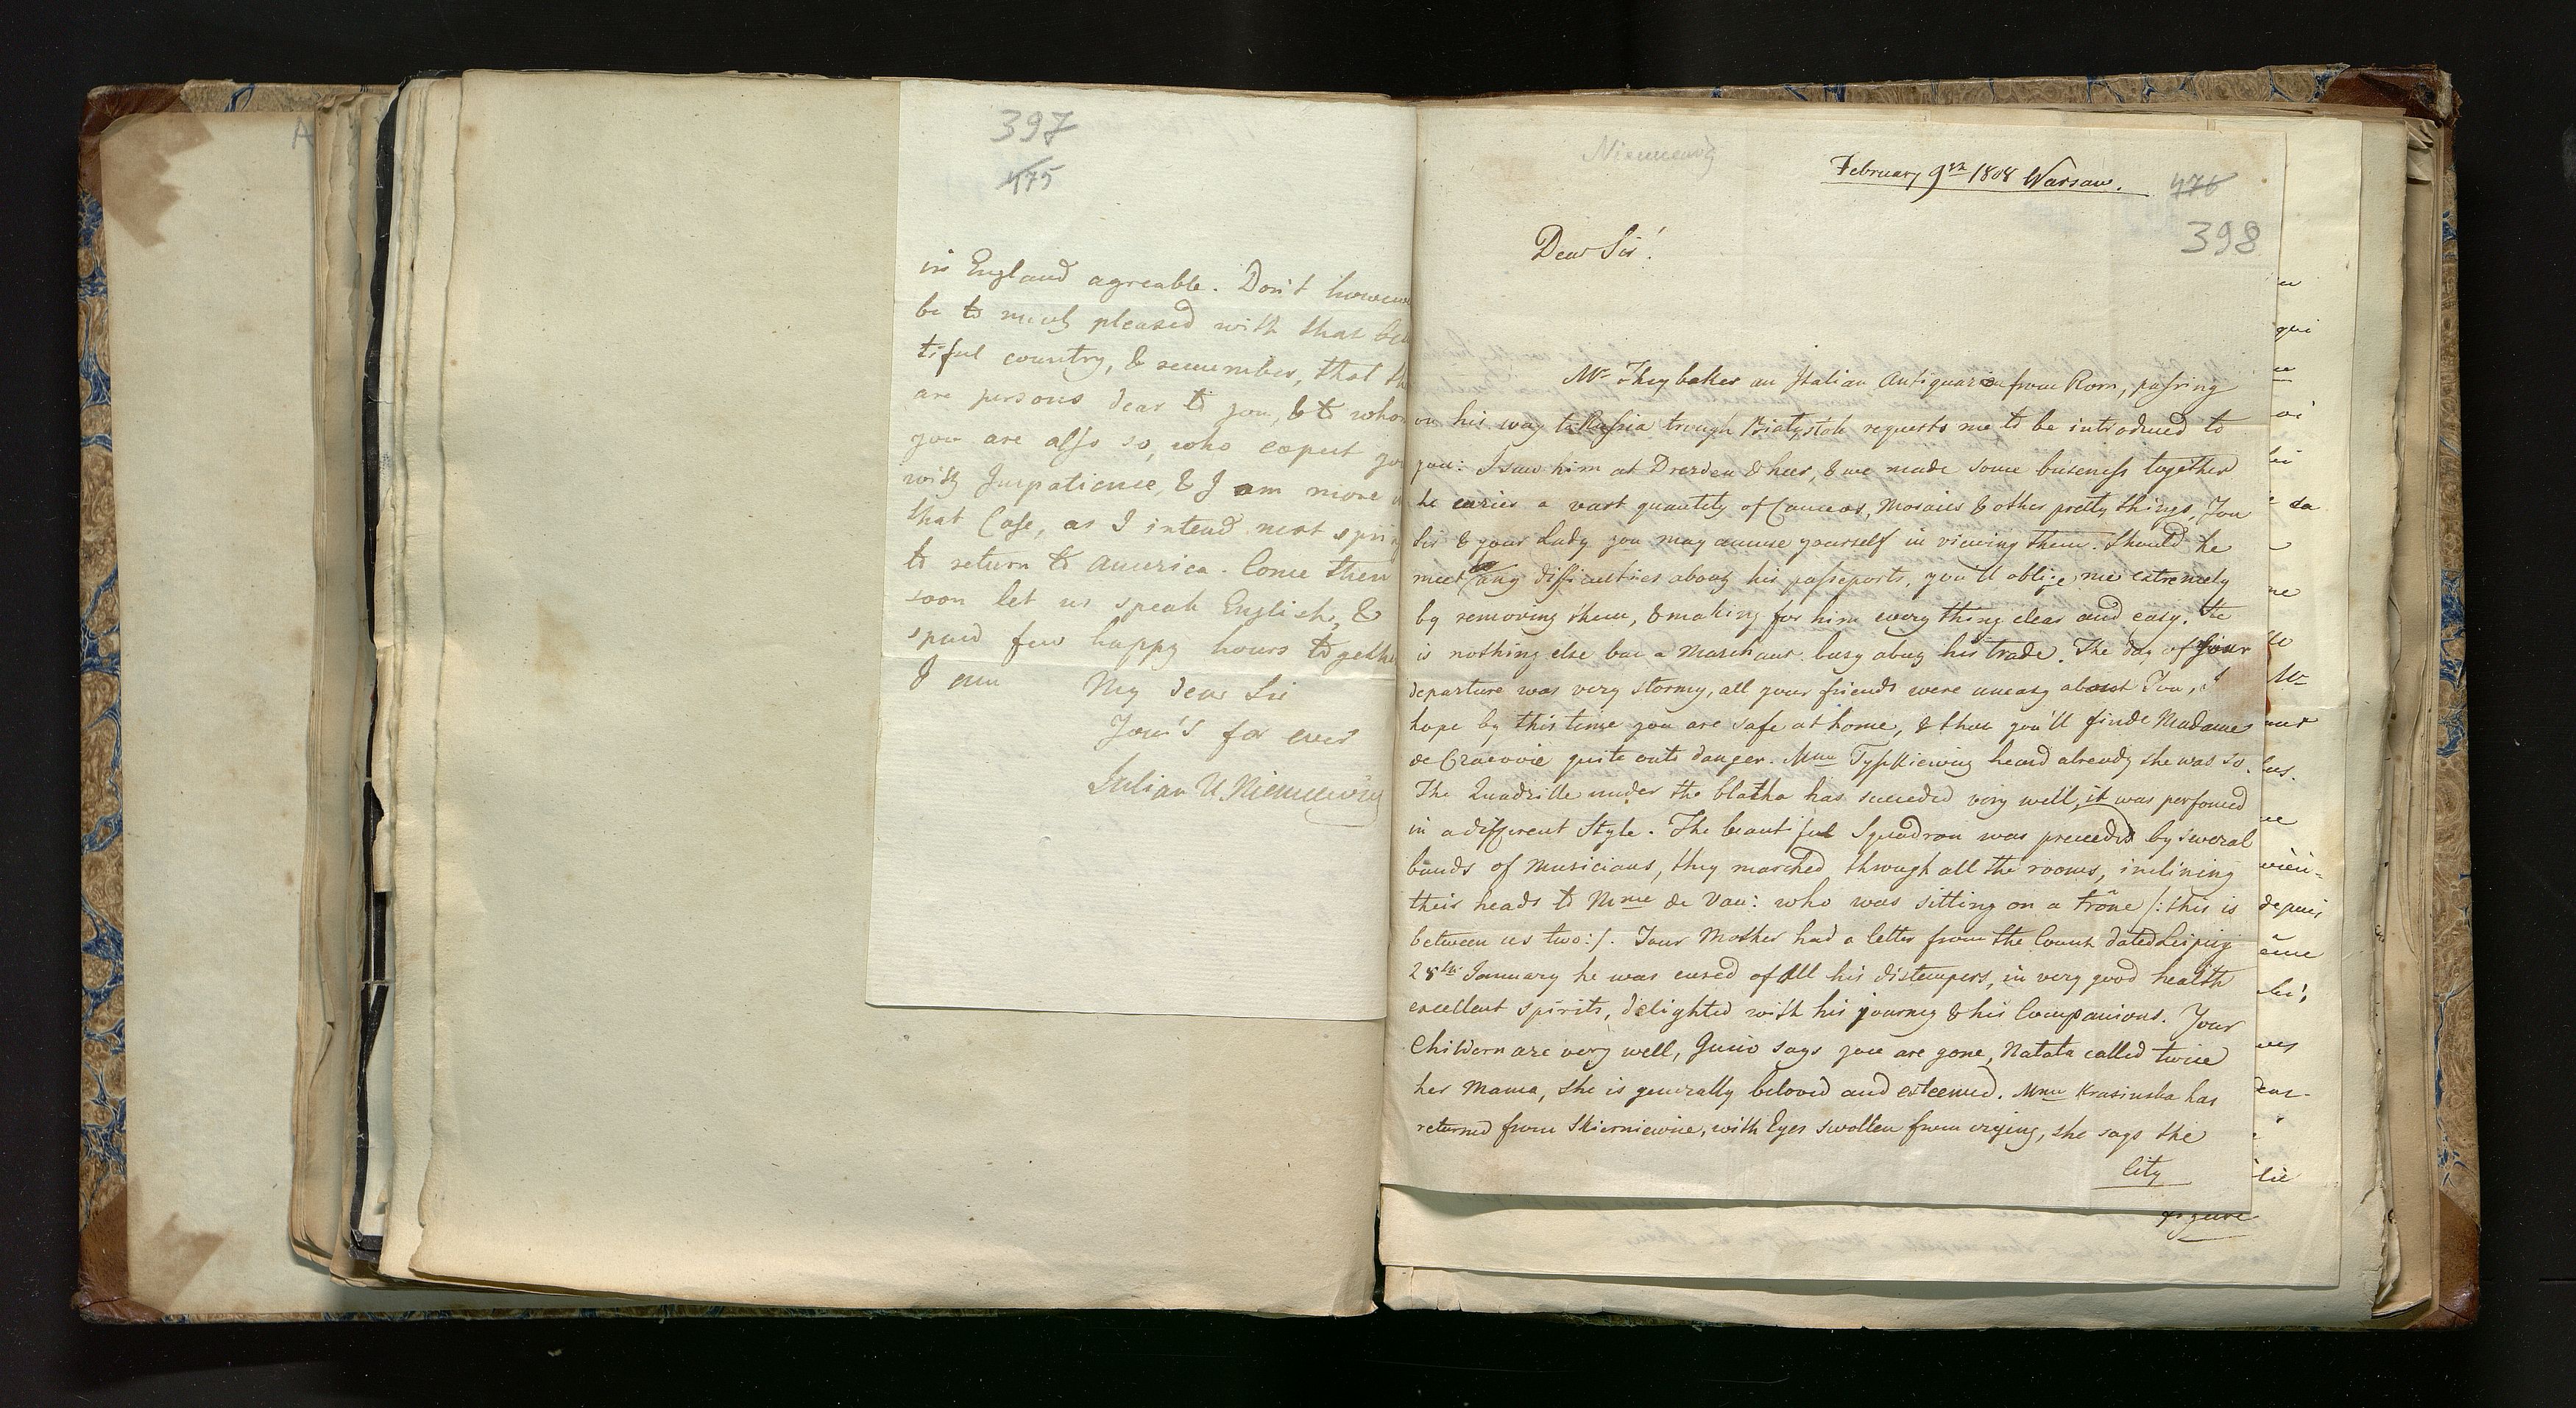 397
475
in England agreable. Don't however
be to much pleased with that beu
tiful country, & remember, that the
are persons dear to you, & to whom
you are also so, who expect you
with Impatience, & I am more in
that Case, as I intend next spring
to return to America. Come then
soon let us speak English, &
spend few happy hours together
I am My dear Sir
Your's for ever
Julian U. Niemcewicz
Niemcewicz
February 9th 1808 Warsaw.
476
398
Dear Sir!
Mr an Italian Antiquarian from Rom, passing
on his way to Russia trough Białystok requests me to be introduced to
you: I saw him at Dresden & heer, & we made some buseness together
he caries a vast quantity of Cameos, Mosaics & other pretty things, You
Sir & your Lady you may amuse yourself in viewing them. Should he
meet any difficulties about his passeports, you'll oblige me extremely
by removing them, & making for him every thing clear and easy. He
is nothing else but a Marchant busy about his trade. The day of your
departure was very stormy, all your friends were uneasy about You, I
hope by this time you are safe at home, & that you'll finde Madame
de Cracovie quite outs danger. Mme Tyszkiewicz heard already she was so.
The Quadrille under the blatha has succeded very well, it was perfomed
in a different Style. The beautiful Squadron was preceeded by several
bands of Musicians, they marched through all the rooms, inclining
their heads to Mme de Vau: who was sitting on a trône /: this is
between us two:/. Your Mother had a letter from the Count dated Leipzig
28th January he was cured of all his distempers, in very good health
excellent spirits, delighted with his journey & his Companions. Your
Childern are very well, Gucio says you are gone, Natata called twice
her Mama, she is generally beloved and esteemed. Mme Krasinska has
returned from Skierniewice, with Eyes swollen from crying, she says the
City
qui
da
ne
Mr
depuis
figure